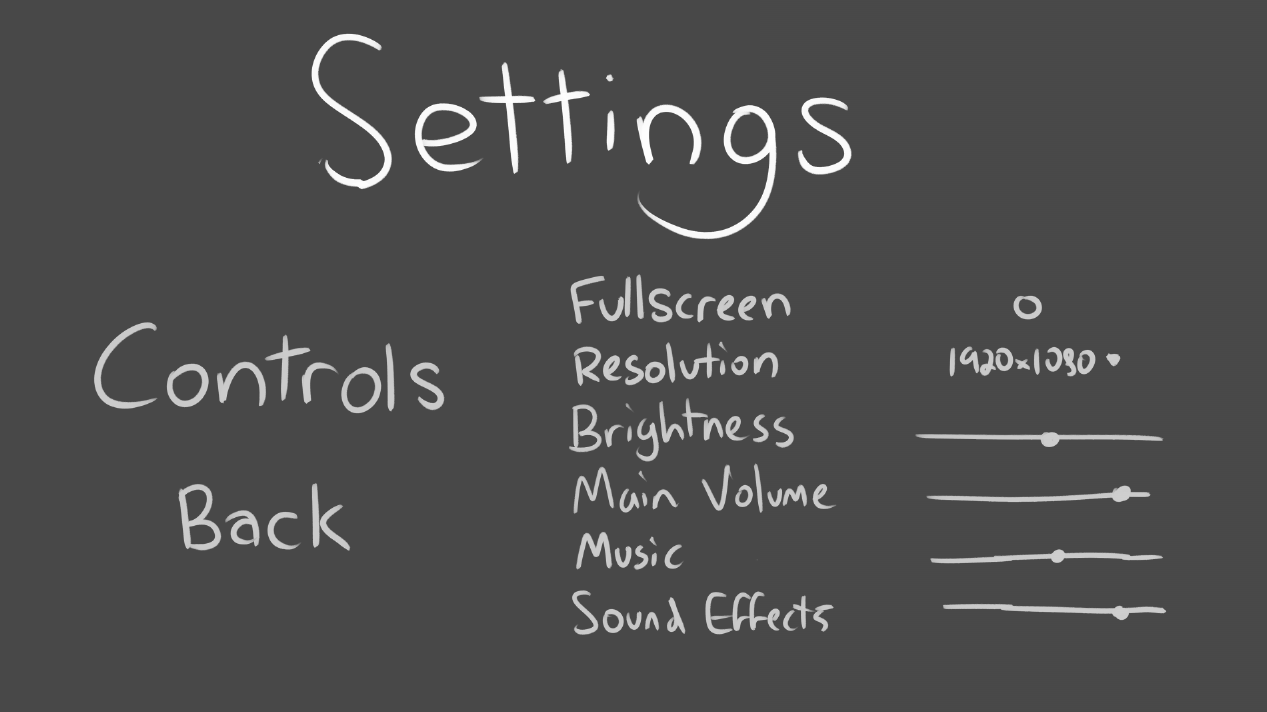 Settings
Controls
Back
Fullscreen
Resolution 1920x1080
Brightness
Main Volume
Music
Sound Effects